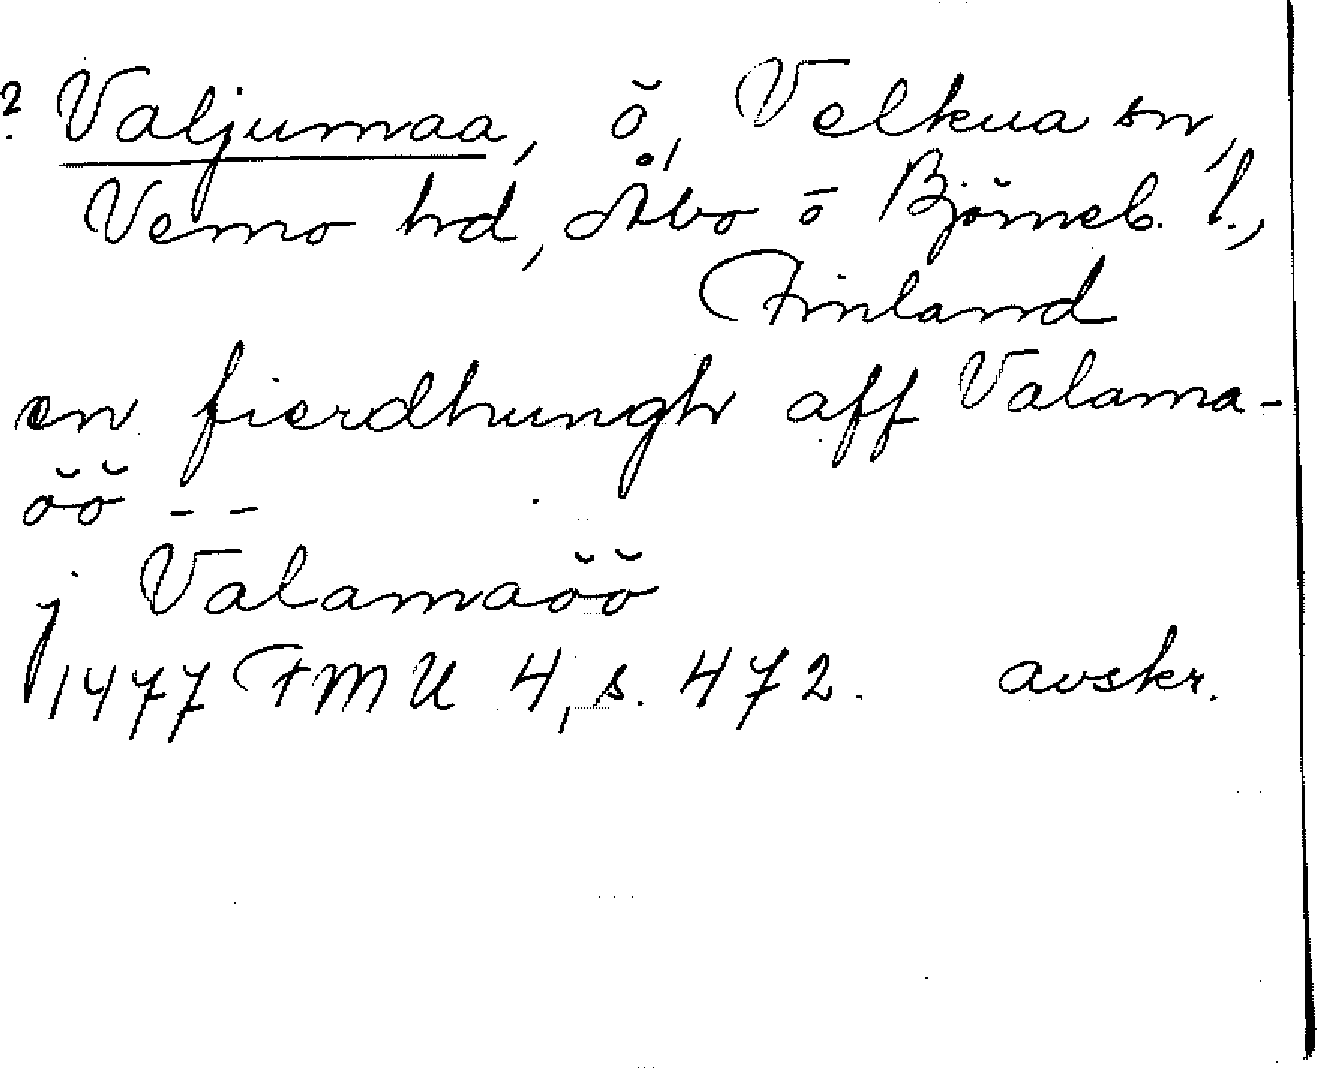 ? Valjumaa, ö, Velkua sn,
Vemo hd, Åbo o Björneb. l.,
Finland
en fierdhungh aff Valama-
öö - -
j Valamaöö
1477 FMU 4, s. 472. avskr.